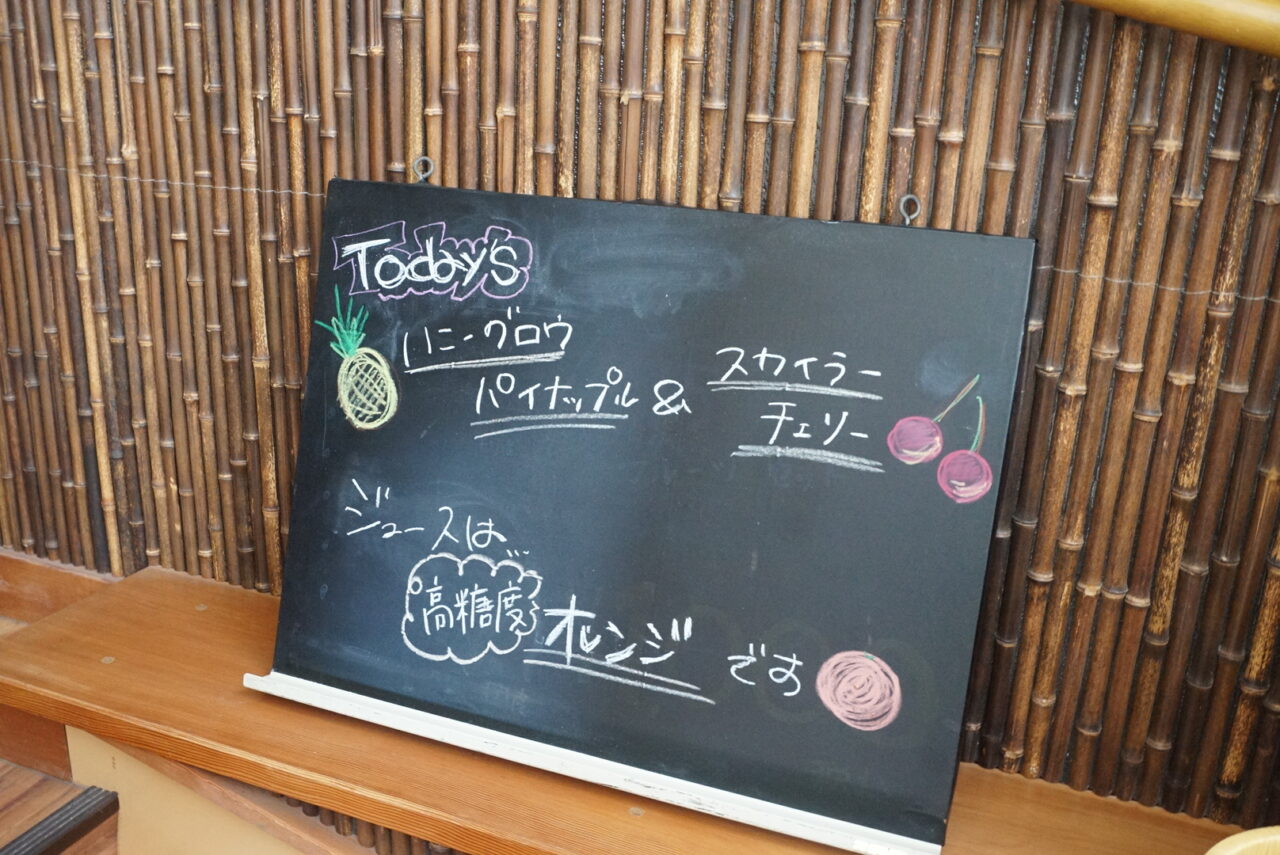 Today's
ハニーグロウ
パイナップル & スカイラー
チェリー
ジュースは
高糖度 オレンジ です